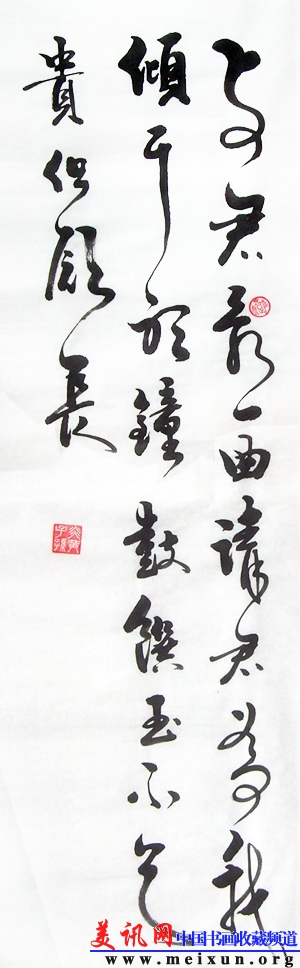 与君歌一曲請君為我
傾耳聽鐘鼓饌玉不足
貴但願長
炎黃
子孫
美讯网 中国书画收藏频道
www.meixun.org